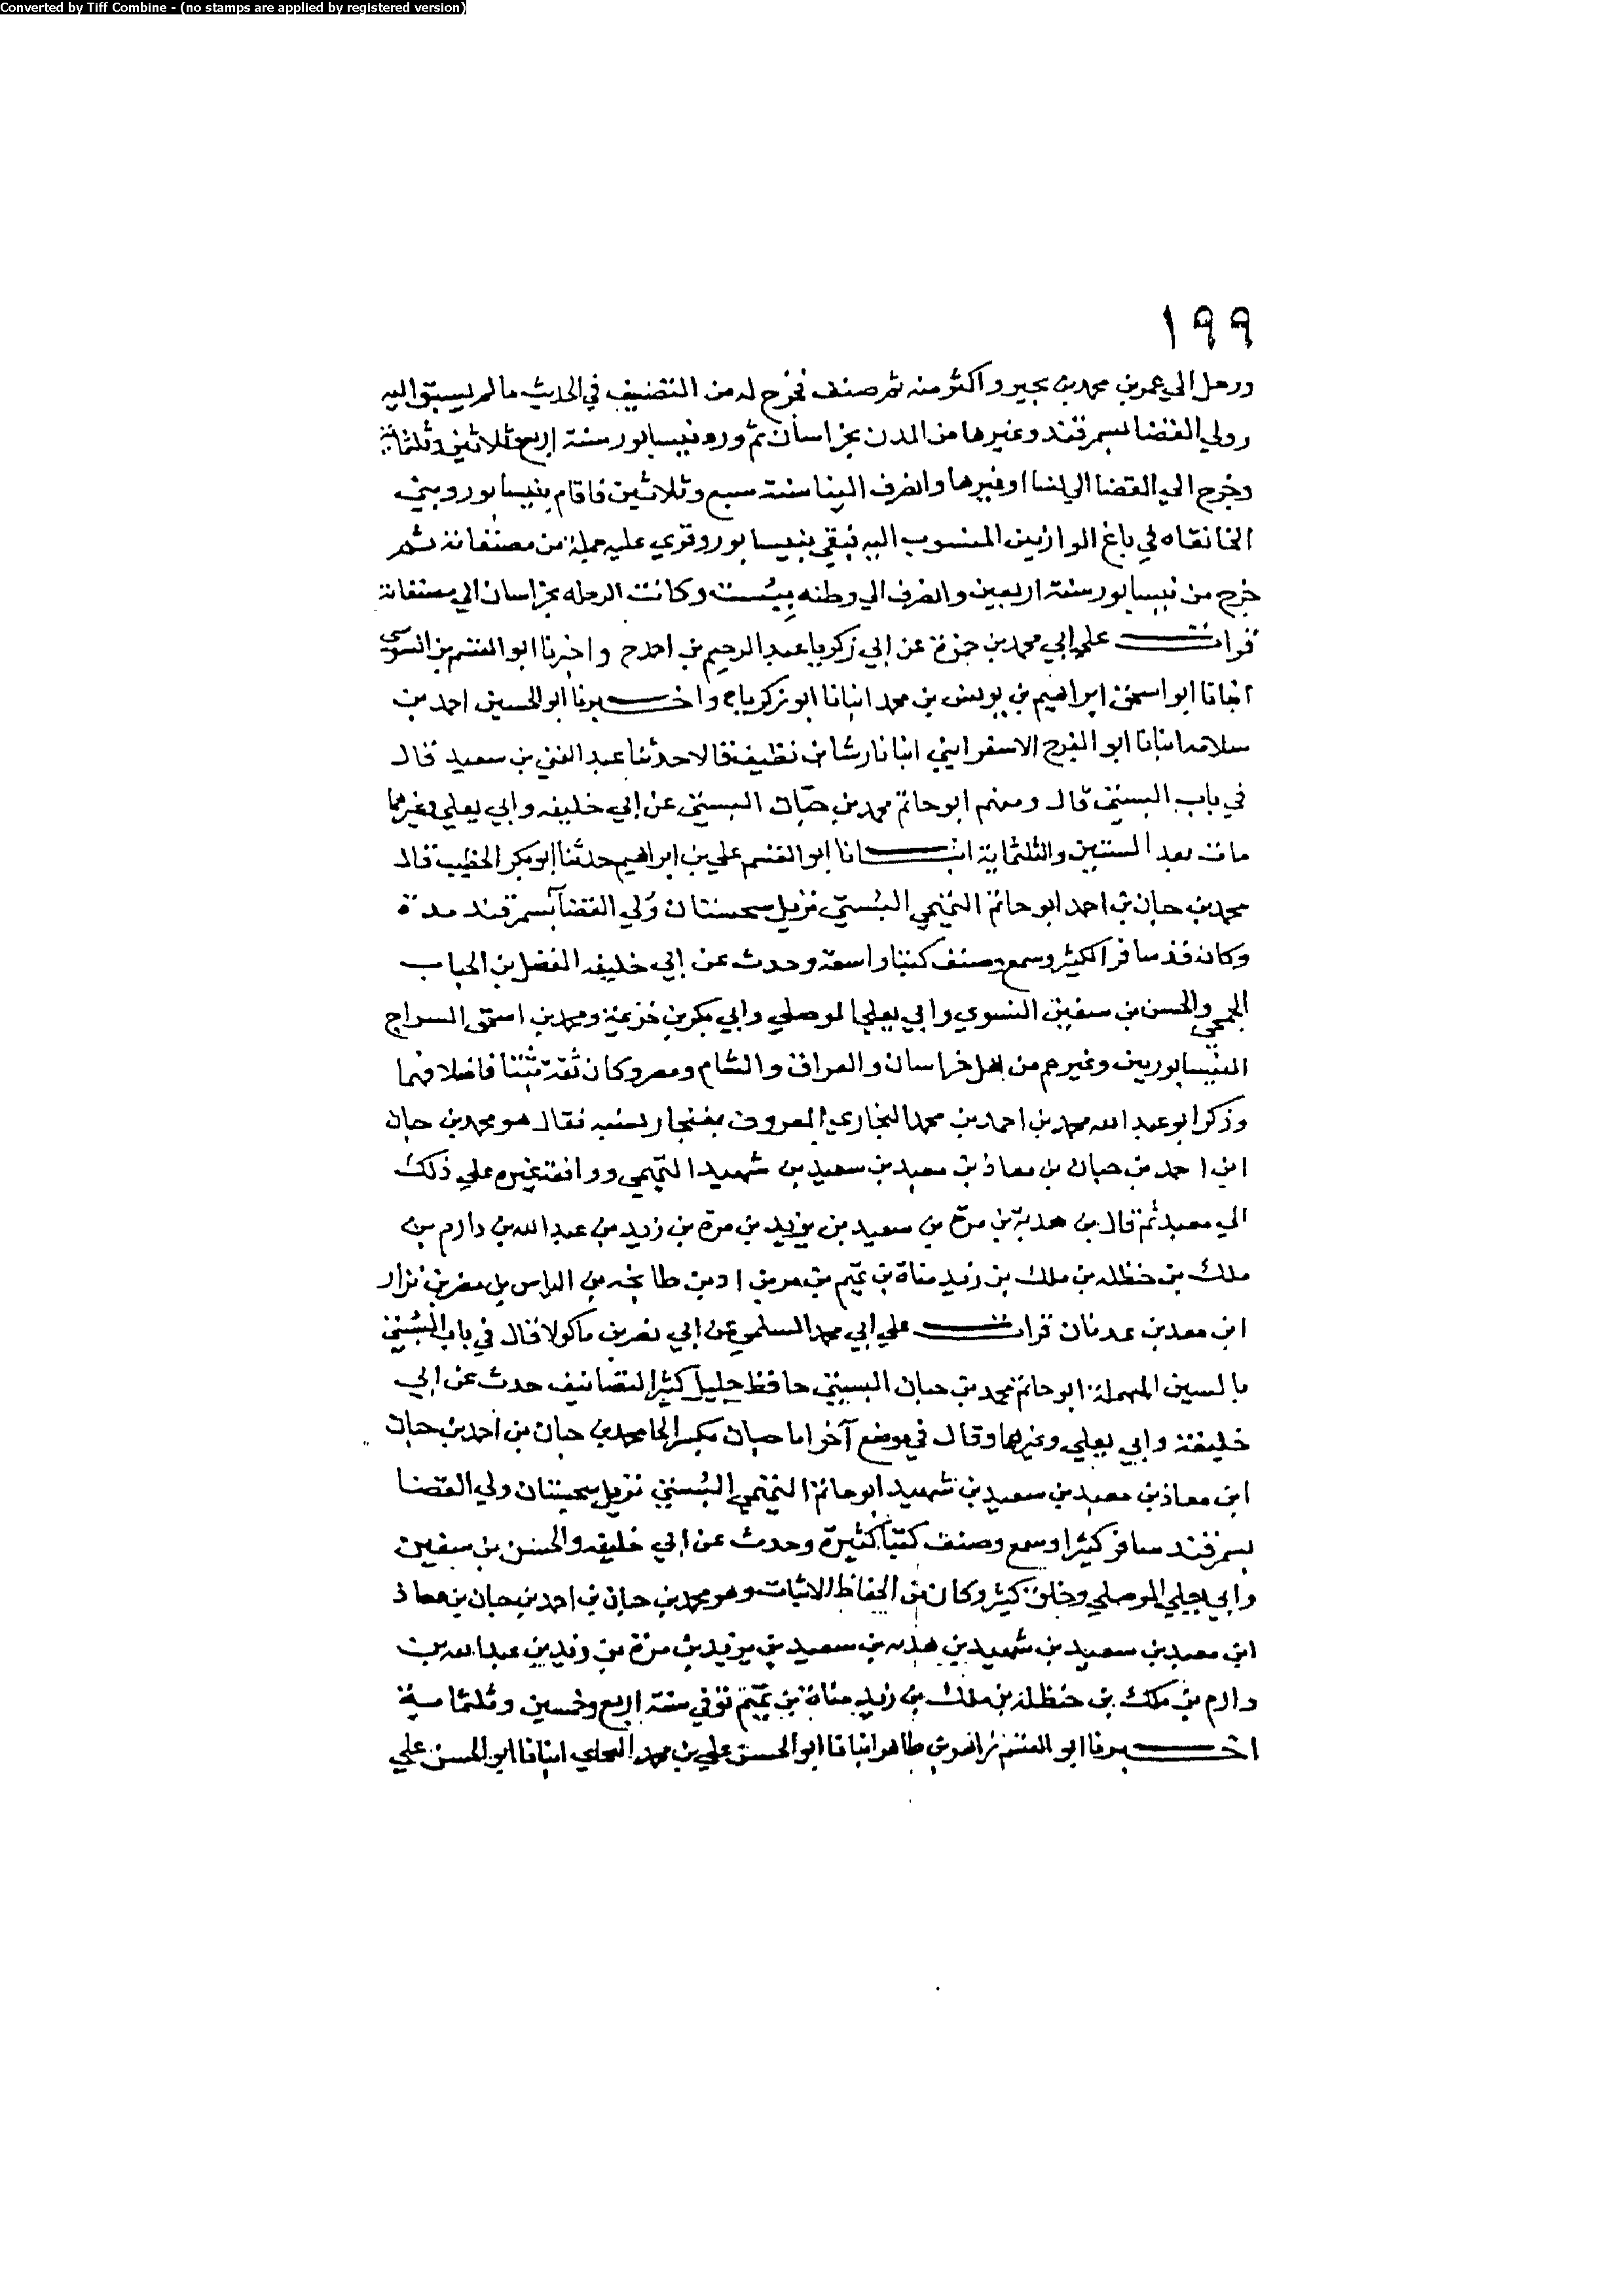 Converted by Tiff Combine - (no stamps are applied by registered version)
١٩٩
ورحل الي عمر بن محمد بن بجير واكثر منه ثم صنف فخرج له من التصنيف في الحديث ما لم يسبق اليه
وولي القضا بسمرقند وغيرها من المدن بخراسان ثم ورد نيسابور سنة اربع وثلاثين وثلثمائة
وخرج الي القضا الي نسا او غيرها وانصرف الينا سنة سبع وثلاثين فاقام بنيسابور وبني
الخانقاه في باغ الرازيين المنسوب اليه فبقي بنيسابور وقري عليه جملة من مصنفاته ثم
خرج من نيسابور سنة اربعين وانصرف الي وطنه ببُست وكانت الرحله بخراسان الي مصنفاته
قرات علي ابي محمد بن حمزة عن ابي زكريا عبد الرحيم بن احمد ح واخبرنا ابو القسم بن السوسي
انبانا ابو اسحق ابراهيم بن يونس بن محمد انبانا ابو زكريا ح واخبرنا ابو الحسين احمد بن
سلامه انبانا ابو الفرج الاسفرايني انبانا رشا بن نظيف قالا حدثنا عبد الغني بن سعيد قال
في باب البستي قال ومنهم ابو حاتم محمد بن حبّان البستي عن ابي خليفه وابي يعلي وغيرهما
مات بعد الستين والثلثماية انبانا ابو القسم علي بن ابراهيم حدثنا ابو بكر الخطيب قال
محمد بن حبان بن احمد ابو حاتم التميمي البُستيّ نزيل سجستان وُلي القضآ بسمرقند مدة
وكان قد سافر الكثير وسمع وصنف كتبا واسعة وحدث عن ابي خليفه الفضل بن الحباب
الجمحي والحسن بن سفين النسوي وابي يعلي الموصلي وابي بكر بن خزيمة ومحمد بن اسحق السراج
النيسابوريين وغيرهم من اهل خراسان والعراق والشام ومصر وكان ثقة ثبتا فاضلا فهما
وذكر ابو عبد الله محمد بن احمد بن محمد البخاري المعروف بغنجار نسبه فقال هو محمد بن حبان
ابن احمد بن حبان بن معاذ بن معبد بن سعيد بن شهيد التميمي ووافقه غيره علي ذلك
الي معبد ثم قال بن هدبة بن مرة بن سعيد بن يزيد بن مرة بن زيد بن عبد الله بن دارم بن
ملك بن حنظله بن ملك بن زيد مناة بن تميم بن مر بن اد بن طابخه بن الياس بن مضر بن نزار
ابن معد بن عدنان قرات علي ابي محمد السلمي عن ابي نصر بن ماكولا قال في باب البُستي
بالسين المهملة ابو حاتم محمد بن حبان البستي حافظ جليل كثير التصانيف حدث عن ابي
خليفة وابي يعلي وغيرهما وقال في موضع آخر اما حبان بكسر الحا محمد بن حبان بن احمد بن حبان
ابن معاذ بن معبد بن سعيد بن شهيد ابو حاتم التميمي البُستي نزيل سجستان ولي القضا
بسمرقند سافر كثيرا وسمع وصنف كتبًا كثيرة وحدث عن ابي خليفه والحسن بن سفين
وابي يعلي الموصلي وخلق كثير وكان من الحفاظ الاثبات وهو محمد بن حبان بن احمد بن حبان بن معاذ
ابن معبد بن سعيد بن شهيد بن هدبه بن سعيد بن يزيد بن مرة بن زيد بن عبد الله بن
دارم بن ملك بن حنظلة بن ملك بن زيد مناة بن تميم توفي سنة اربع وخمسين وثلثماية
اخبرنا ابو القسم زاهر بن طاهر انبانا ابو الحسن علي بن محمد البحاي انبانا ابو الحسن علي